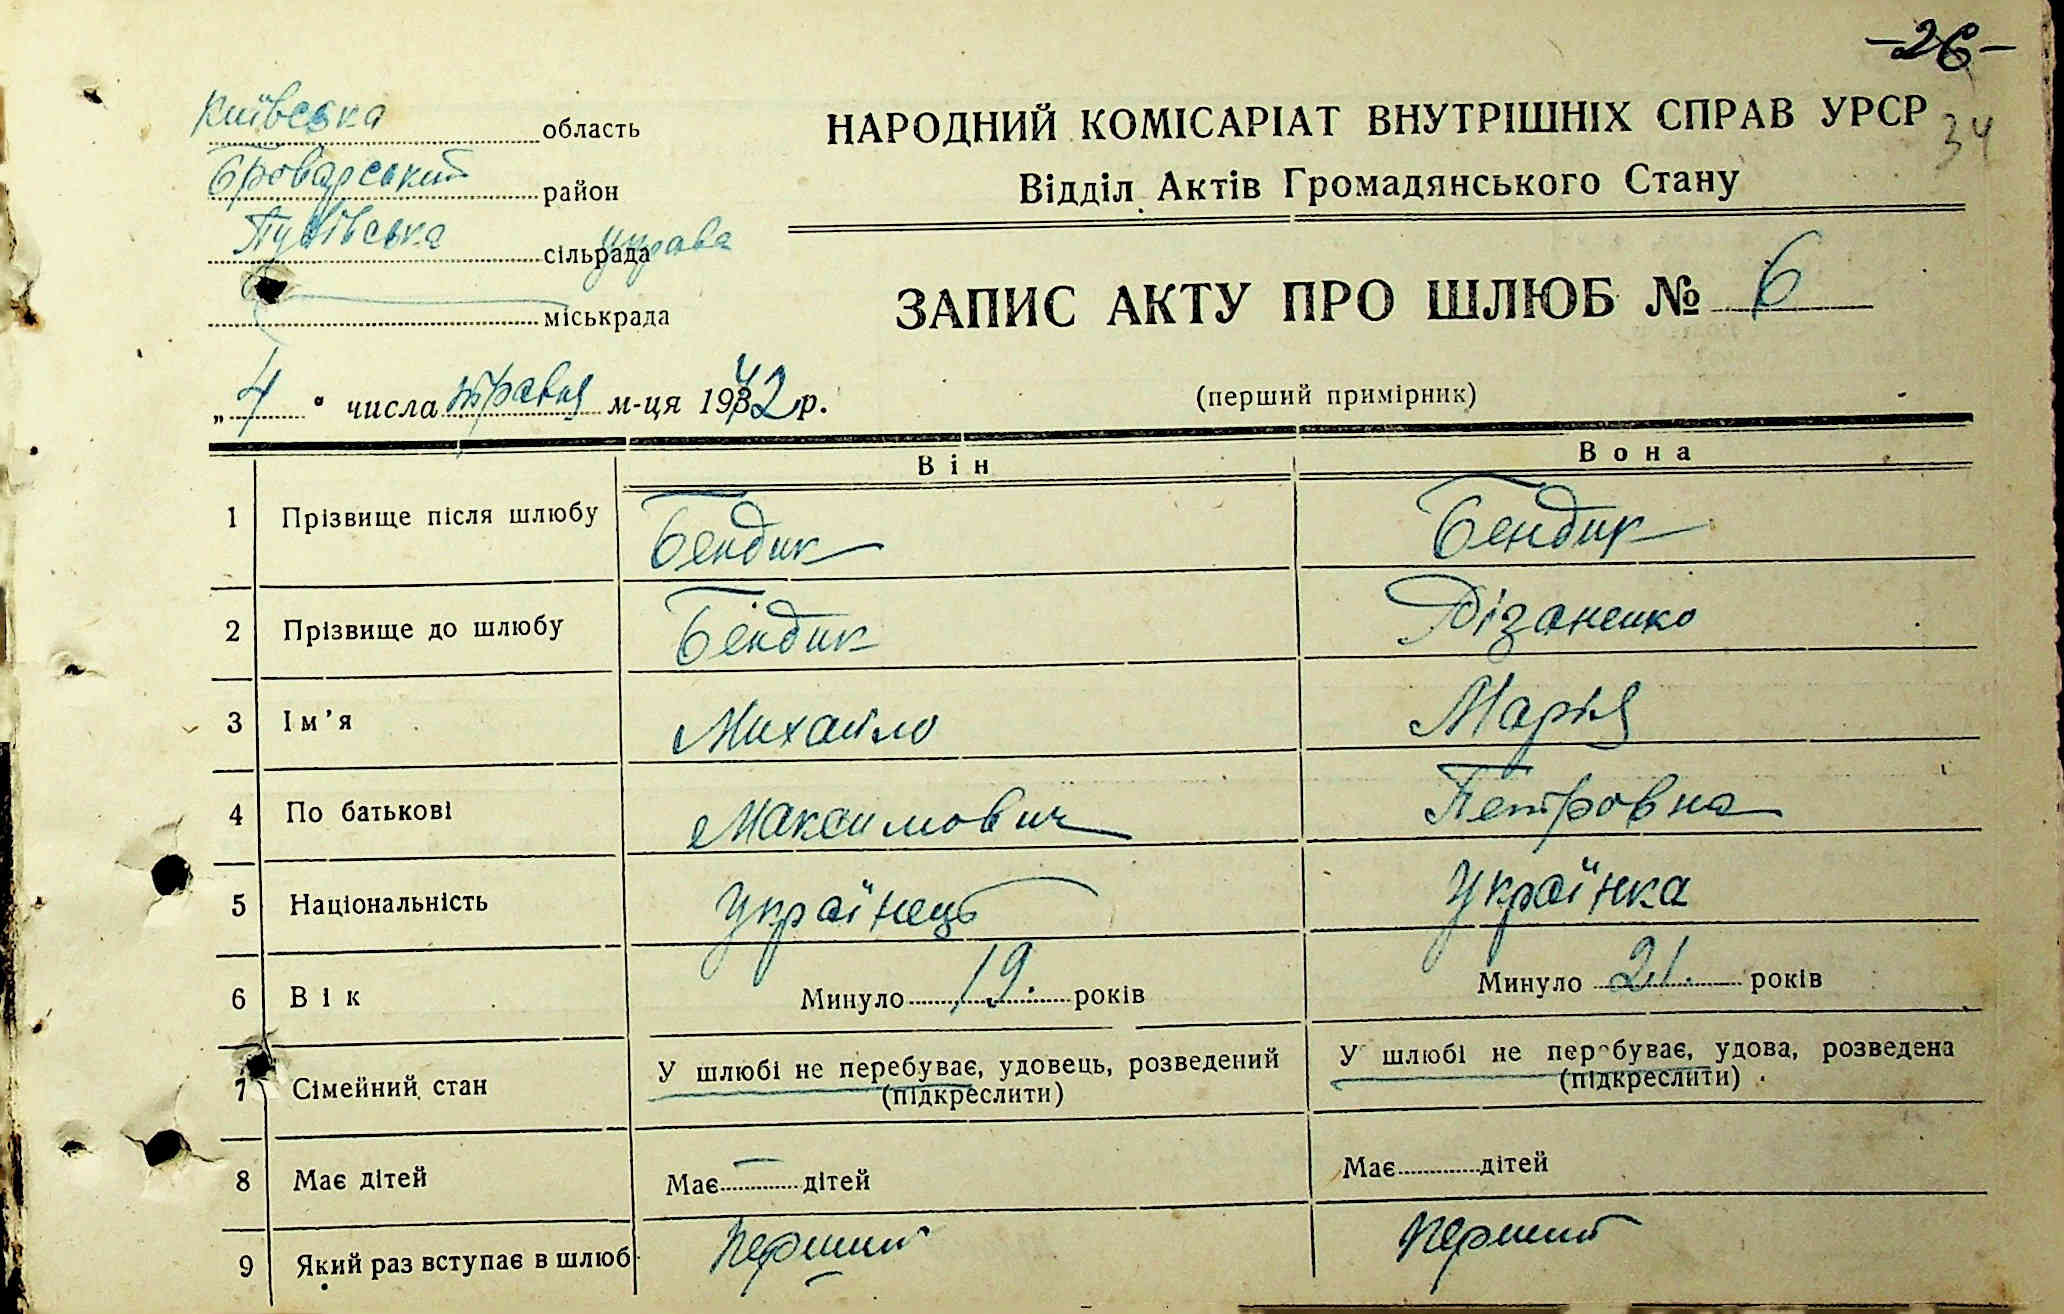 -26-
Київська область
НАРОДНИЙ КОМІСАРІАТ ВНУТРІШНІХ СПРАВ УРСР
34
Броварський район
Відділ Актів Громадянського Стану
сільрада управа
ЗАПИС АКТУ ПРО ШЛЮБ № 6
міськрада
„4" числа травня м-ця 1942 р.
(перший примірник)
Він Вона
1 Прізвище після шлюбу Бендик Бендик
2 Прізвище до шлюбу Бендик Дізаненко
3 Ім'я Михайло Марія
4 По батькові Максимович Петровна
5 Національність Українець Українка
6 Вік Минуло 19. років Минуло 21. років
7 Сімейний стан У шлюбі не перебуває, удовець, розведений У шлюбі не перебуває, удова, розведена
(підкреслити) (підкреслити)
8 Має дітей Має — дітей Має дітей
9 Який раз вступає в шлюб Перший Перший